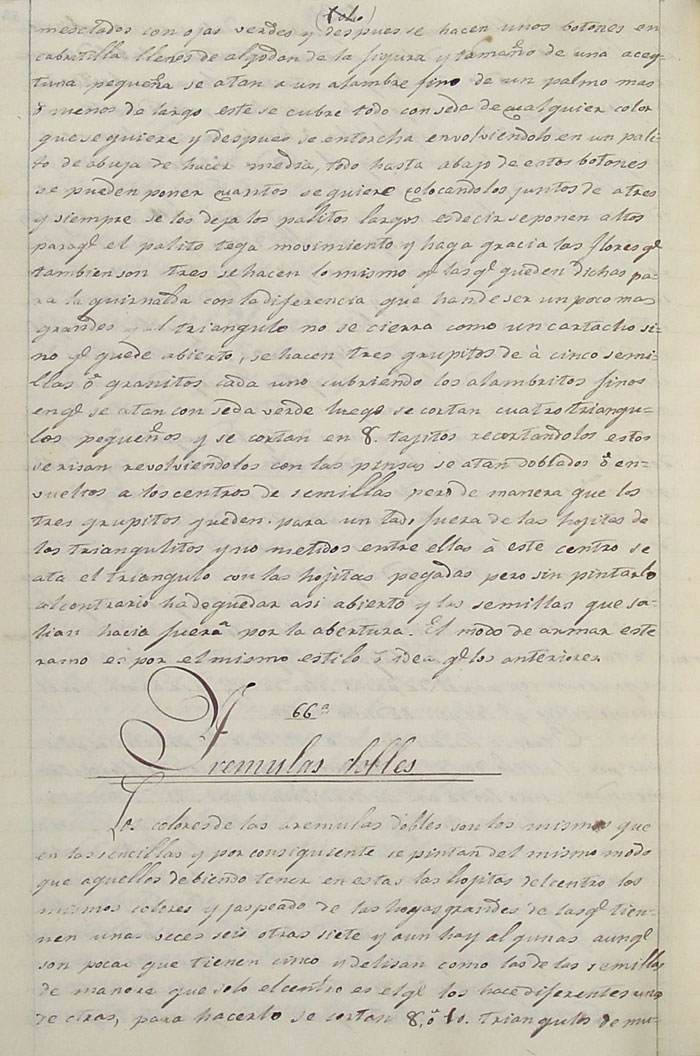 (110)
mesclados con ojas verdes y despues se hacen unos botones en
cabritilla llenos de algodon de la figura y tamaño de una acey-
tuna pequeña se atan a un alambre fino de un palmo mas
ò menos de largo este se cubre todo con seda de cualquier color
que se quiere y despues se entorcha envolviendolo en un pali-
to de abuja de hacer media, todo hasta abajo de estos botones
se pueden poner cuantos se quiere colocandolos juntos de a tres
y siempre se los deja los palitos largos es decir se ponen altos
paraqe el palito tega movimiento y haga gracia las flores qe
tambien son tres se hacen lo mismo qe las qe queden dichas pa-
ra la guirnalda con la diferencia que han de ser un poco mas
grandes y el triangulo no se cierra como un cartacho si-
no qe quede abierto, se hacen tres grupitos de à cinco semi-
llas ò granitos cada uno cubriendo los alambritos finos
en qe se atan con seda verde luego se cortan cuatro triangu-
los pequeños y se cortan en 8. tajitos recortandolos estos
se risan revolviendolos con las pinsas se atan doblados ò en-
vueltos a los centros de semillas pero de manera que los
tres grupitos queden para un lado fuera de las hojitas de
los triangulitos y no metidos entre ellas à este centro se
ata el triangulo con las hojitas pegadas pero sin pintarlo
al contrario ha de quedar asi abierto y las semillas que sa-
lian hacia fuera por la abertura. El modo de armar este
ramo es por el mismo estilo ò idea qe los anteriores
66a
Aremulas dobles
Los colores de las aremulas dobles son los mismos que
en las sencillas y por consiguiente se pintan del mismo modo
que aquellos debiendo tener en estas las hojitas del centro los
mismos colores y jaspeado de las hojas grandes de las qe tie-
nen unas veces seis otras siete y aun hay algunas aunqe
son pocas que tienen cinco y delisan como las de las semillas
de manera que solo el centro es el qe los hace diferentes unas
de otras, para hacerlo se cortan 8, ò 10. triangulos de mu-